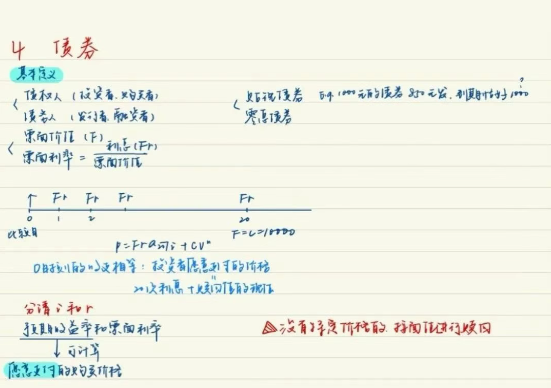 4 债券
基本定义
债权人（投资者、购买者）
债务人（发行者、融资者）
贴现债券 如 1000元的债券 850元发，到期付1000
零息债券
票面价值（F）
票面利率 = 利息(Fr) / 票面价值
↑ Fr Fr Fr Fr
0 1 2 20
F=C=10000
0时刻的 相等：投资者愿意支付的价格
20次利息+赎回值的现值
分清 i 和 r
预期收益率和票面利率
↓ 可计算
愿意支付的购买价格
△没有 价格的，按面值进行赎回